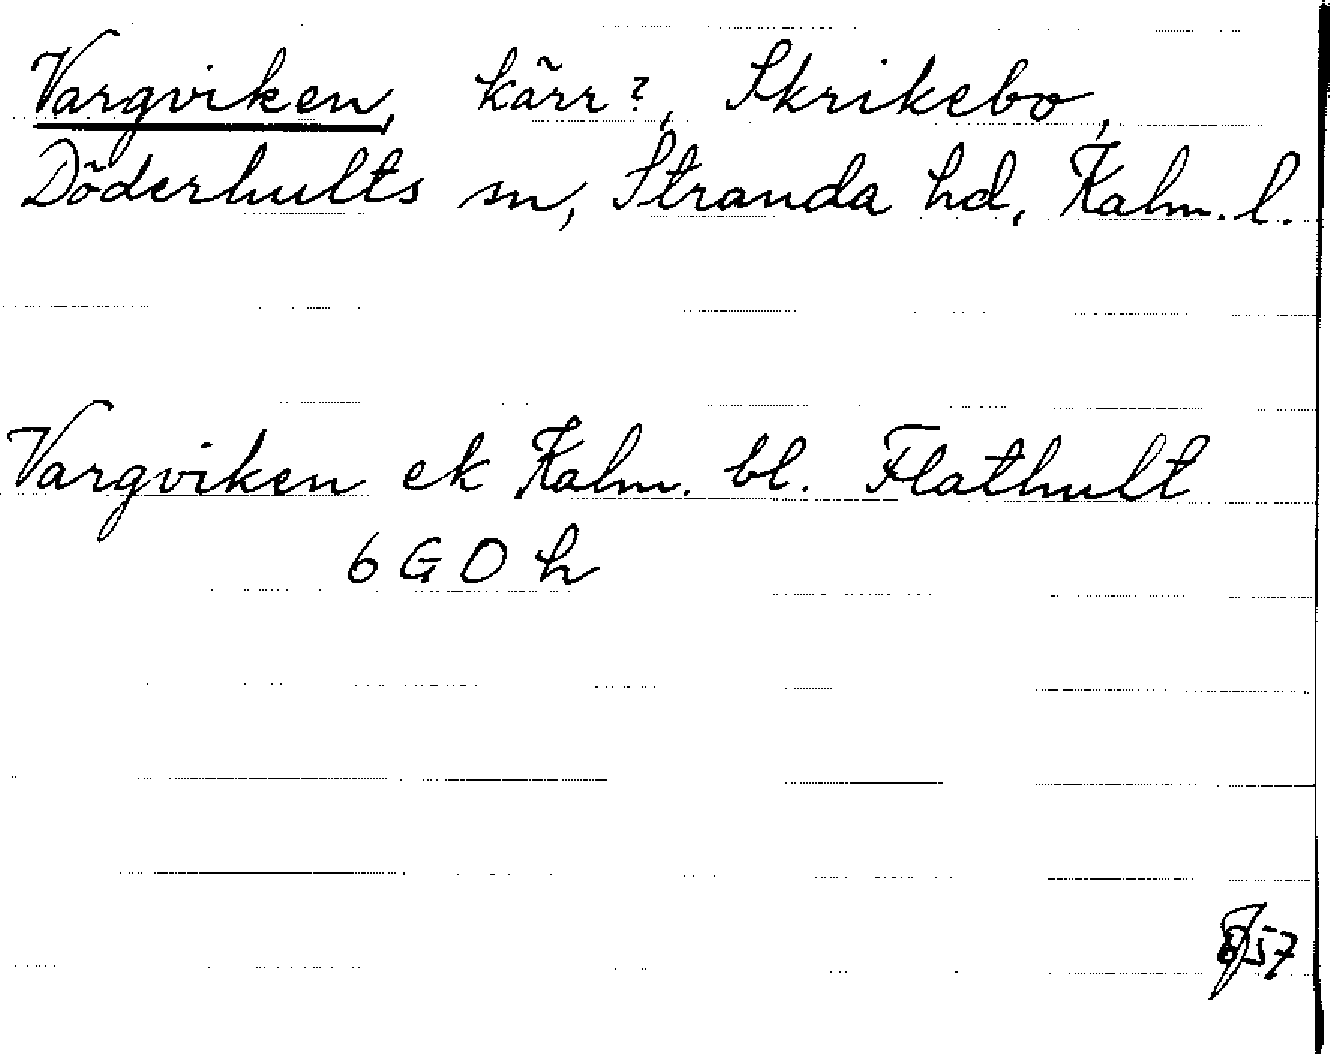 Vargviken, kärr?, Skrikebo,
Döderhults sn, Stranda hd, Kalm. l.
Vargviken ek Kalm. bl. Flathult
6 G O h
57